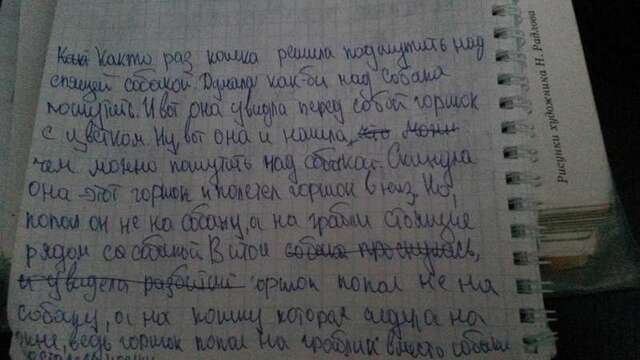 Как то раз кошка решила подшутить над
спящей собакой. Думала как-би над собака
пошутить. И вот она увидла перед собой горшок
с цветком. Ну вот она и нашла, кто можн
чем можно пошутить над собакай. Скинула
она этот горшок и полетел горшок в низ. Но,
попал он не на собаку, а на грабли стоящие
рядом со собакой. В итоге собака проснулась,
и увидела разбитий горшок попал не на
собаку, а на кошку которая сидела на
ведь горшок попал на грабли вместо собаки
Рисунки художника Н. Радлова